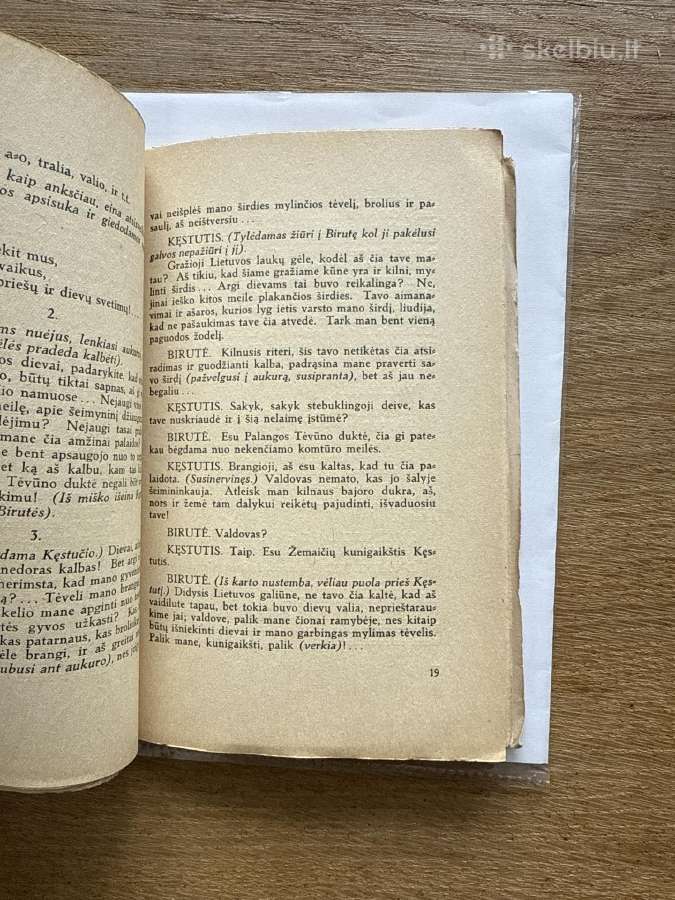 skelbiu.lt
a⸗o, tralia, valio, ir t.t.
kaip anksčiau, eina
os apsisuka ir giedodamos
ekit mus,
vaikus,
priešų ir dievų svetimų!...
2.
ms nuėjus, lenkiasi aukurui
ėlės pradeda kalbėti).
os dievai, padarykite, kad
o, būtų tiktai sapnas,
io namuose... Nejaugi
meilę, apie šeimyninį
ėjimu? Nejaugi tasai
mane čia amžinai
e bent apsaugojo nuo to
et ką aš kalbu, kam tas
Tėvūno duktė negali būt
kimu! (Iš miško išeina
Birutės).
3.
dama Kęstučio.) Dievai,
nedoras kalbas! Bet
nerimsta, kad mano
ą?... Tėveli mano
kelio mane apginti nuo
tės gyvos užkasti?
kas patarnaus, kas
ėle brangi, ir aš greitai
ubusi ant aukuro), nes
vai neišplėš mano širdies mylinčios tėvelį, brolius ir pa⸗
saulį, aš neištversiu...
KĘSTUTIS. (Tylėdamas žiūri į Birutę kol ji pakėlusi
galvos nepažiūri į jį).
Gražioji Lietuvos laukų gėle, kodėl aš čia tave ma⸗
tau? Aš tikiu, kad šiame gražiame kūne yra ir kilni, my⸗
linti širdis... Argi dievams tai buvo reikalinga? Ne,
jinai ieško kitos meile plakančios širdies. Tavo aimana⸗
vimai ir ašaros, kurios lyg ietis varsto mano širdį, liudija,
kad ne pašaukimas tave čia atvedė. Tark man bent vieną
paguodos žodelį.
BIRUTĖ. Kilnusis riteri, šis tavo netikėtas čia atsi⸗
radimas ir guodžianti kalba, padrąsina mane praverti sa⸗
vo širdį (pažvelgusi į aukurą, susipranta), bet aš jau ne⸗
begaliu...
KĘSTUTIS. Sakyk, sakyk stebuklingoji deive, kas
tave nuskriaudė ir į šią nelaimę įstūmė?
BIRUTĖ. Esu Palangos Tėvūno duktė, čia gi pate⸗
kau bėgdama nuo nekenčiamo komtūro meilės.
KĘSTUTIS. Brangioji, aš esu kaltas, kad tu čia pa⸗
laidota. (Susinervinęs.) Valdovas nemato, kas jo šalyje
šeimininkauja. Atleisk man kilnaus bajoro dukra, aš,
nors ir žemė tam dalykui reikėtų pajudinti, išvaduosiu
tave!
BIRUTĖ. Valdovas?
KĘSTUTIS. Taip. Esu Žemaičių kunigaikštis Kęs⸗
tutis.
BIRUTĖ. (Iš karto nustemba, vėliau puola prieš Kęs⸗
tutį.) Didysis Lietuvos galiūne, ne tavo čia kaltė, kad aš
vaidilute tapau, bet tokia buvo dievų valia, neprieštarau⸗
kime jai; valdove, palik mane čionai ramybėje, nes kitaip
būtų išniekinti dievai ir mano garbingas mylimas tėvelis.
Palik mane, kunigaikšti, palik (verkia)!...
19